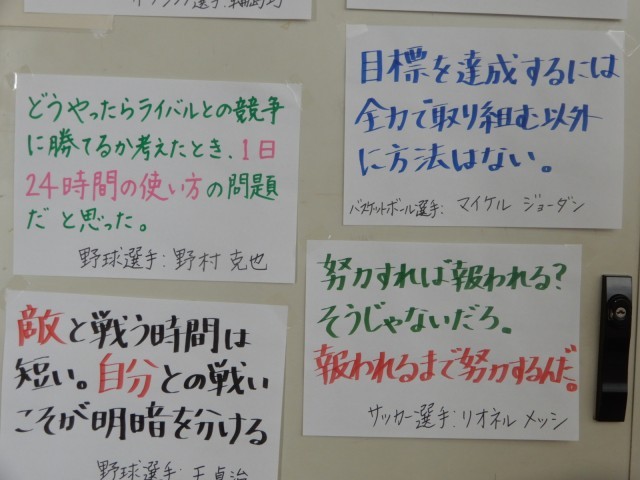 どうやったらライバルとの競争
に勝てるか考えたとき、1日
24時間の使い方の問題
だと思った。
野球選手:野村 克也
目標を達成するには
全力で取り組む以外
に方法はない。
バスケットボール選手: マイケル ジョーダン
敵と戦う時間は
短い。自分との戦い
こそが明暗を分ける
野球選手:王貞治
努力すれば報われる?
そうじゃないだろ。
報われるまで努力するんだ。
サッカー選手:リオネル メッシ